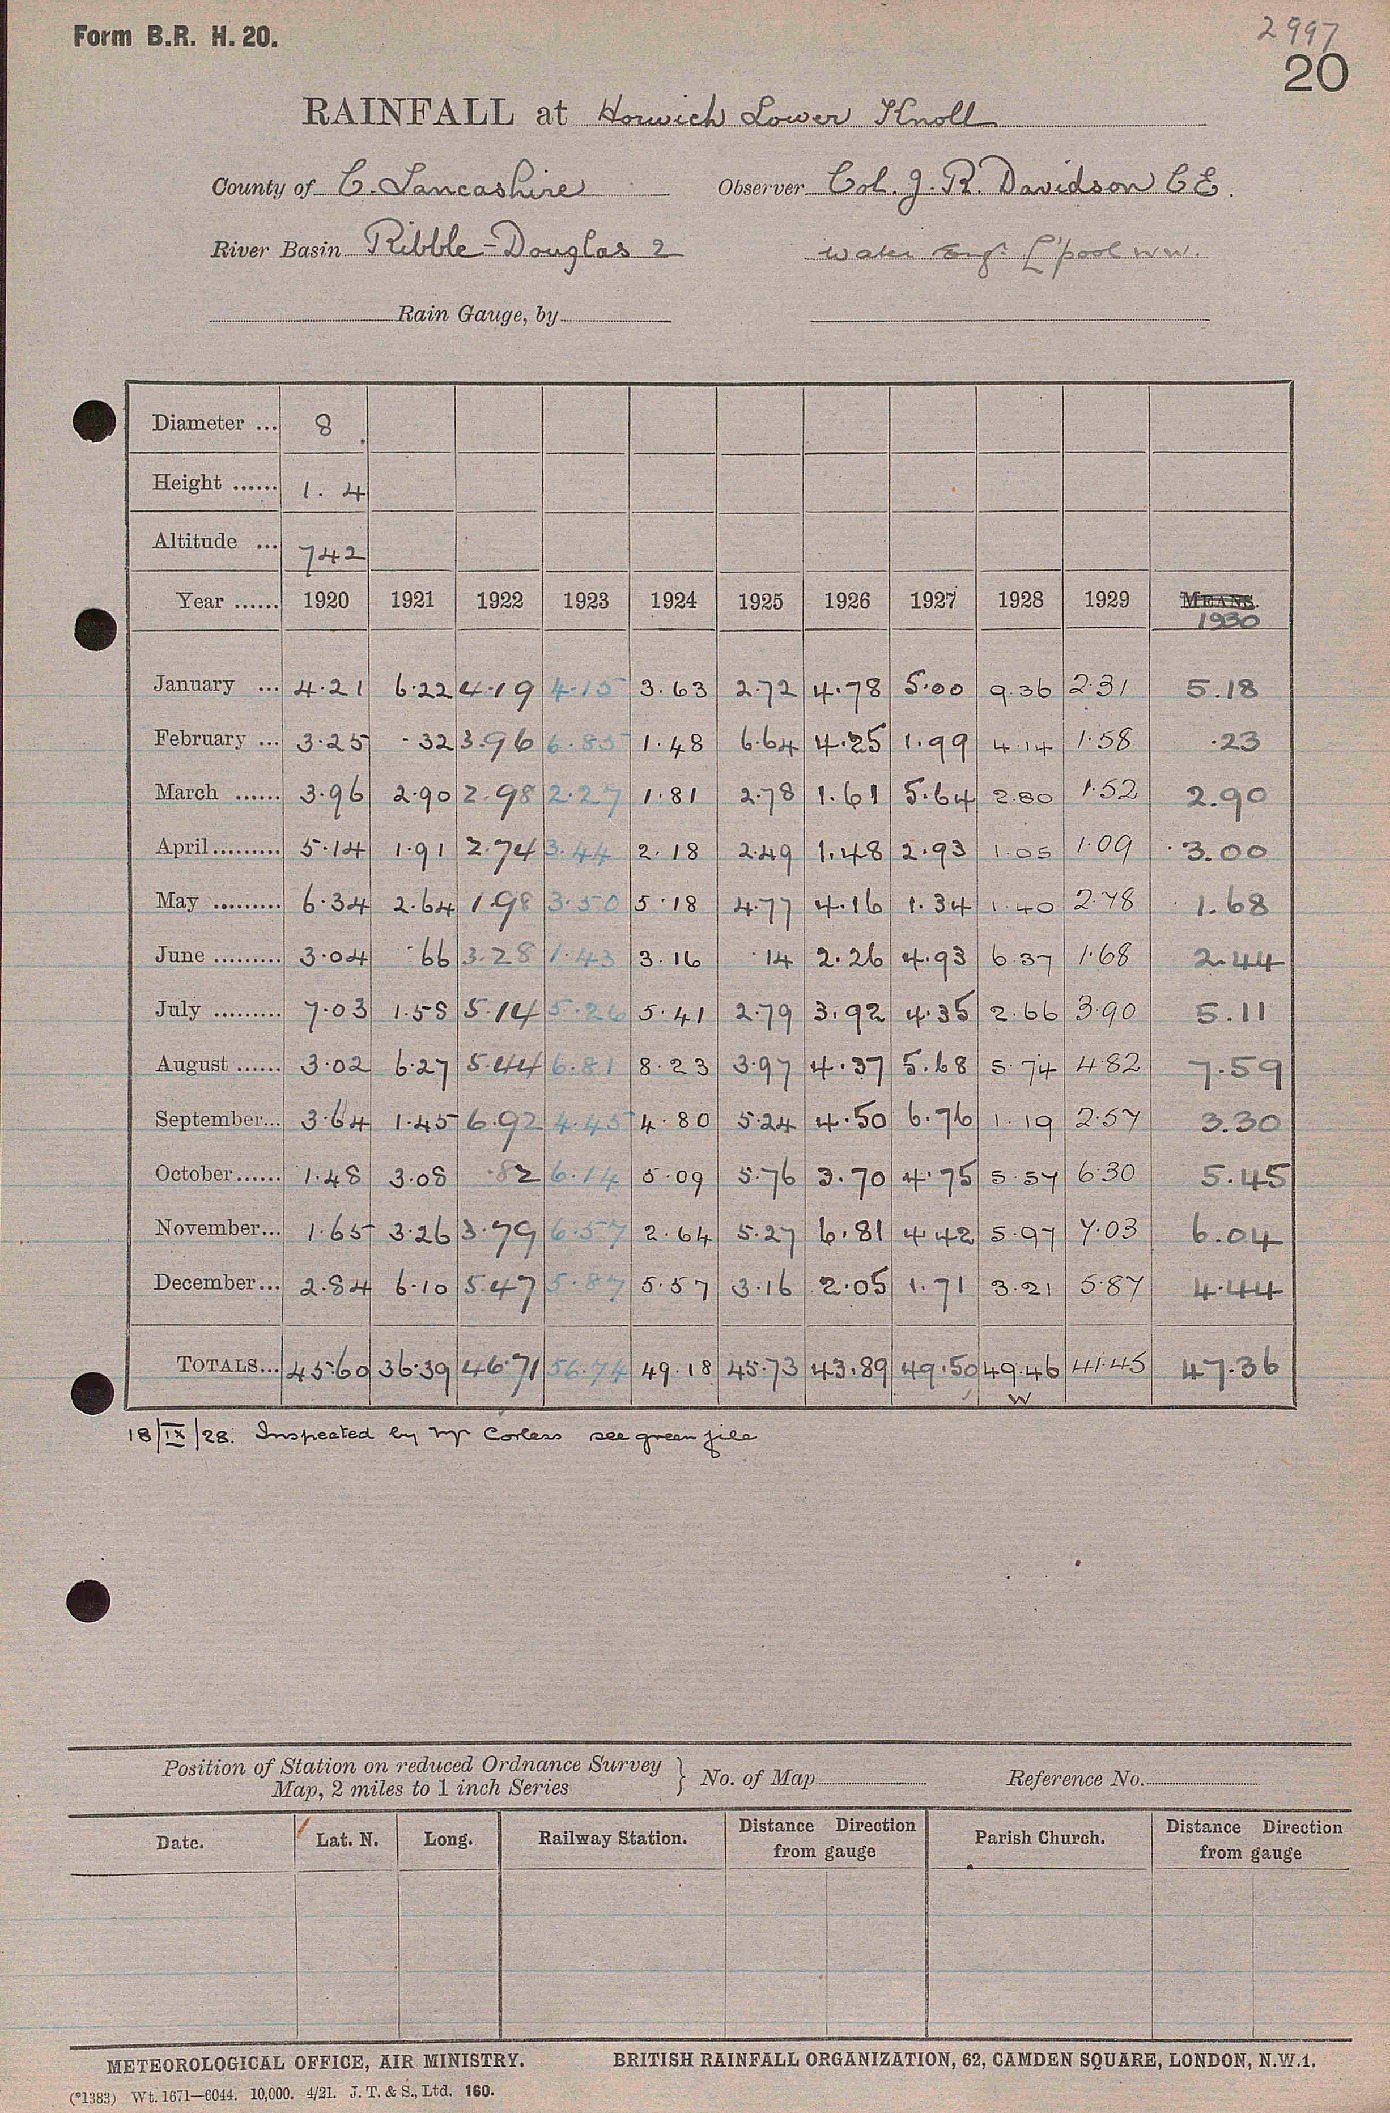 Form B.R. H. 20.
2997
20
RAINFALL at Horwich Lower Knoll
County of C. Lancashire Observer Col. J. R. Davidson C E.
River Basin Ribble-Douglas 2 Water Engr. L'pool WW.
Rain Gauge, by
Diameter ... 8
Height ...... 1. 4
Altitude ... 742
Year ...... 1920 1921 1922 1923 1924 1925 1926 1927 1928 1929 MEANS.
1930
January ... 4.21 6.22 4.19 4.15 3.63 2.72 4.78 5.00 9.36 2.31 5.18
February ... 3.25 .32 3.96 6.85 1.48 6.64 4.25 1.99 4.14 1.58 .23
March ...... 3.96 2.90 2.98 2.27 1.81 2.78 1.61 5.64 2.80 1.52 2.90
April......... 5.14 1.91 2.74 3.44 2.18 2.49 1.48 2.93 1.05 1.09 3.00
May ......... 6.34 2.64 1.98 3.50 5.18 4.77 4.16 1.34 1.40 2.78 1.68
June ......... 3.04 .66 3.28 1.43 3.16 .14 2.26 4.93 6.37 1.68 2.44
July ......... 7.03 1.58 5.14 5.26 5.41 2.79 3.92 4.35 2.66 3.90 5.11
August ...... 3.02 6.27 5.44 6.81 8.23 3.97 4.37 5.68 5.74 4.82 7.59
September... 3.64 1.45 6.92 4.45 4.80 5.24 4.50 6.76 1.19 2.57 3.30
October...... 1.48 3.08 .82 6.14 5.09 5.76 3.70 4.75 5.57 6.30 5.45
November... 1.65 3.26 3.79 6.57 2.64 5.27 6.81 4.42 5.97 7.03 6.04
December... 2.84 6.10 5.47 5.87 5.57 3.16 2.05 1.71 3.21 5.87 4.44
TOTALS... 45.60 36.39 46.71 56.74 49.18 45.73 43.89 49.50 49.46 41.45 47.36
W
18/IX/28. Inspected by Mr Corless see green file
Position of Station on reduced Ordnance Survey
Map, 2 miles to 1 inch Series } No. of Map Reference No.
Date. Lat. N. Long. Railway Station. Distance Direction
from gauge Parish Church. Distance Direction
from gauge
METEOROLOGICAL OFFICE, AIR MINISTRY. BRITISH RAINFALL ORGANIZATION, 62, CAMDEN SQUARE, LONDON, N.W.1.
(*1383) Wt. 1671—6044. 10,000. 4/21. J. T. & S., Ltd. 160.